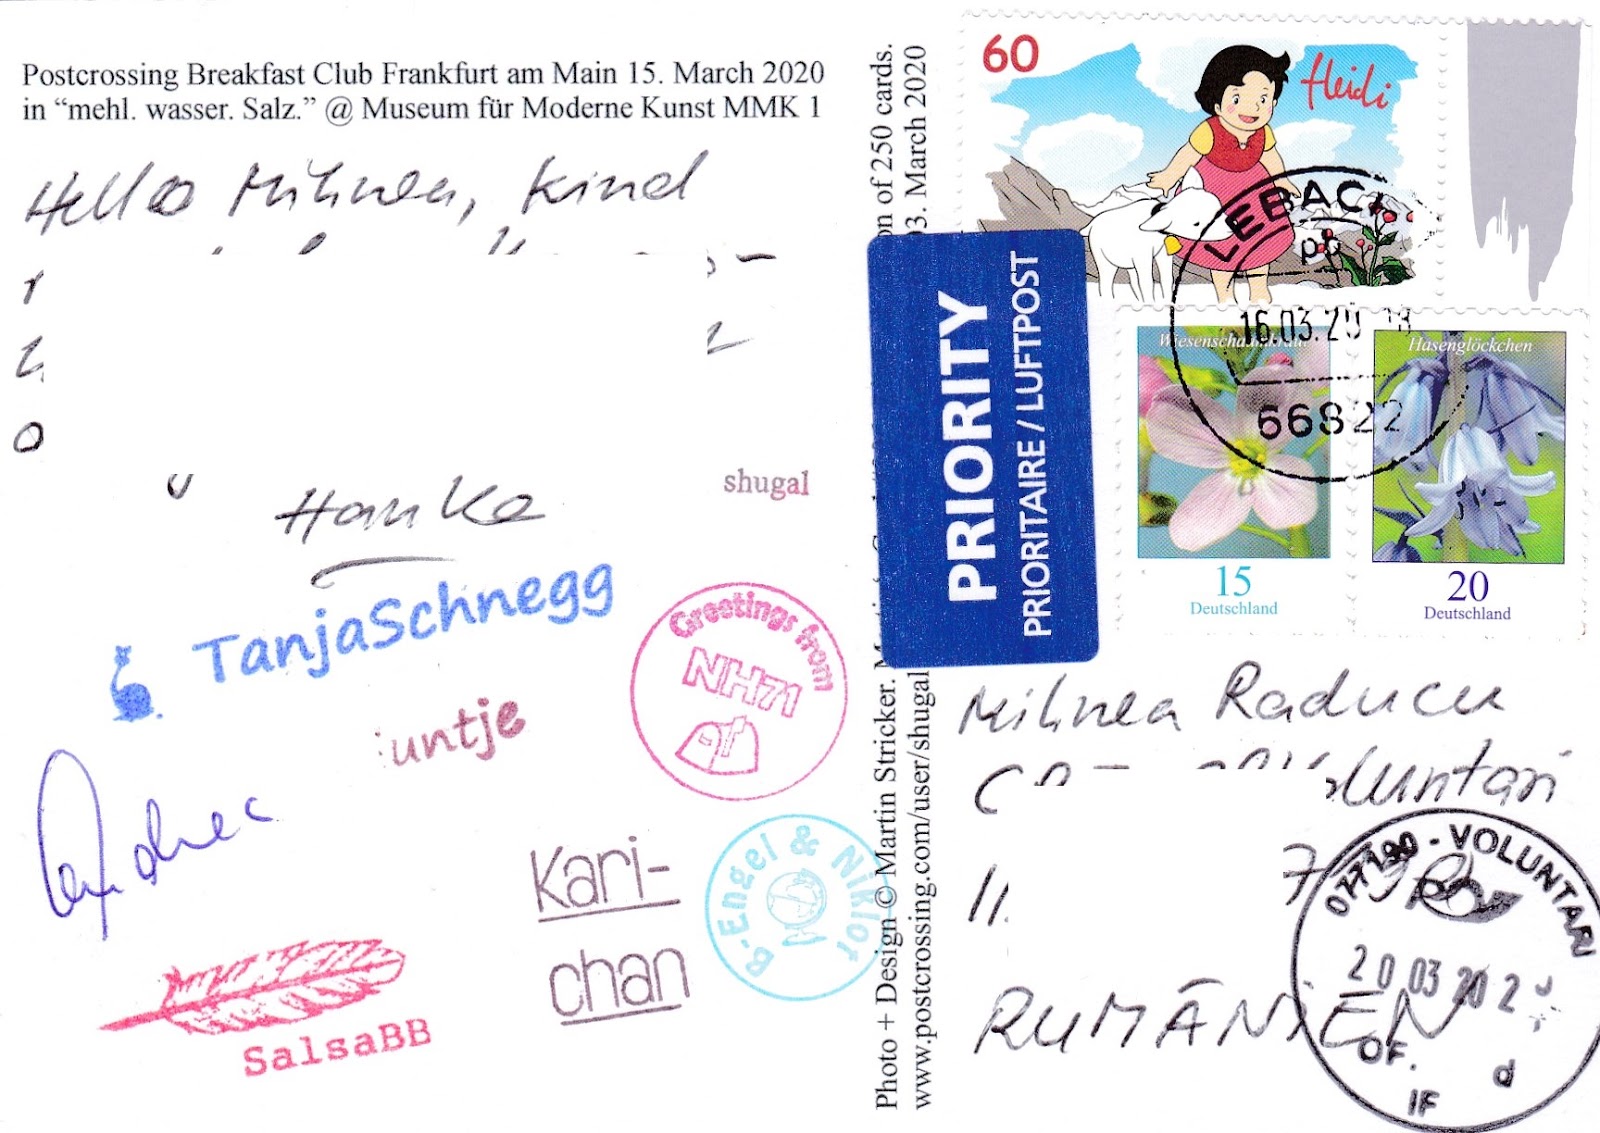 Postcrossing Breakfast Club Frankfurt am Main 15. March 2020
in “mehl. wasser. Salz.” @ Museum für Moderne Kunst MMK 1
Hello Mihnea, kind
Hanka
shugal
TanjaSchnegg
untje
Greetings from
NH71
B.Engel & Niklor
Kari-
chan
SalsaBB
on of 250 cards.
03. March 2020
Photo + Design © Martin Stricker.
www.postcrossing.com/user/shugal
PRIORITY
PRIORITAIRE / LUFTPOST
60
Heidi
LEBACH
16.03.20
66822
Wiesenschaumkraut
15
Deutschland
Hasenglöckchen
20
Deutschland
Mihnea Raducu
Voluntari
RUMÄNIEN
077190 - VOLUNTARI
20 03 202
OF.
IF
d